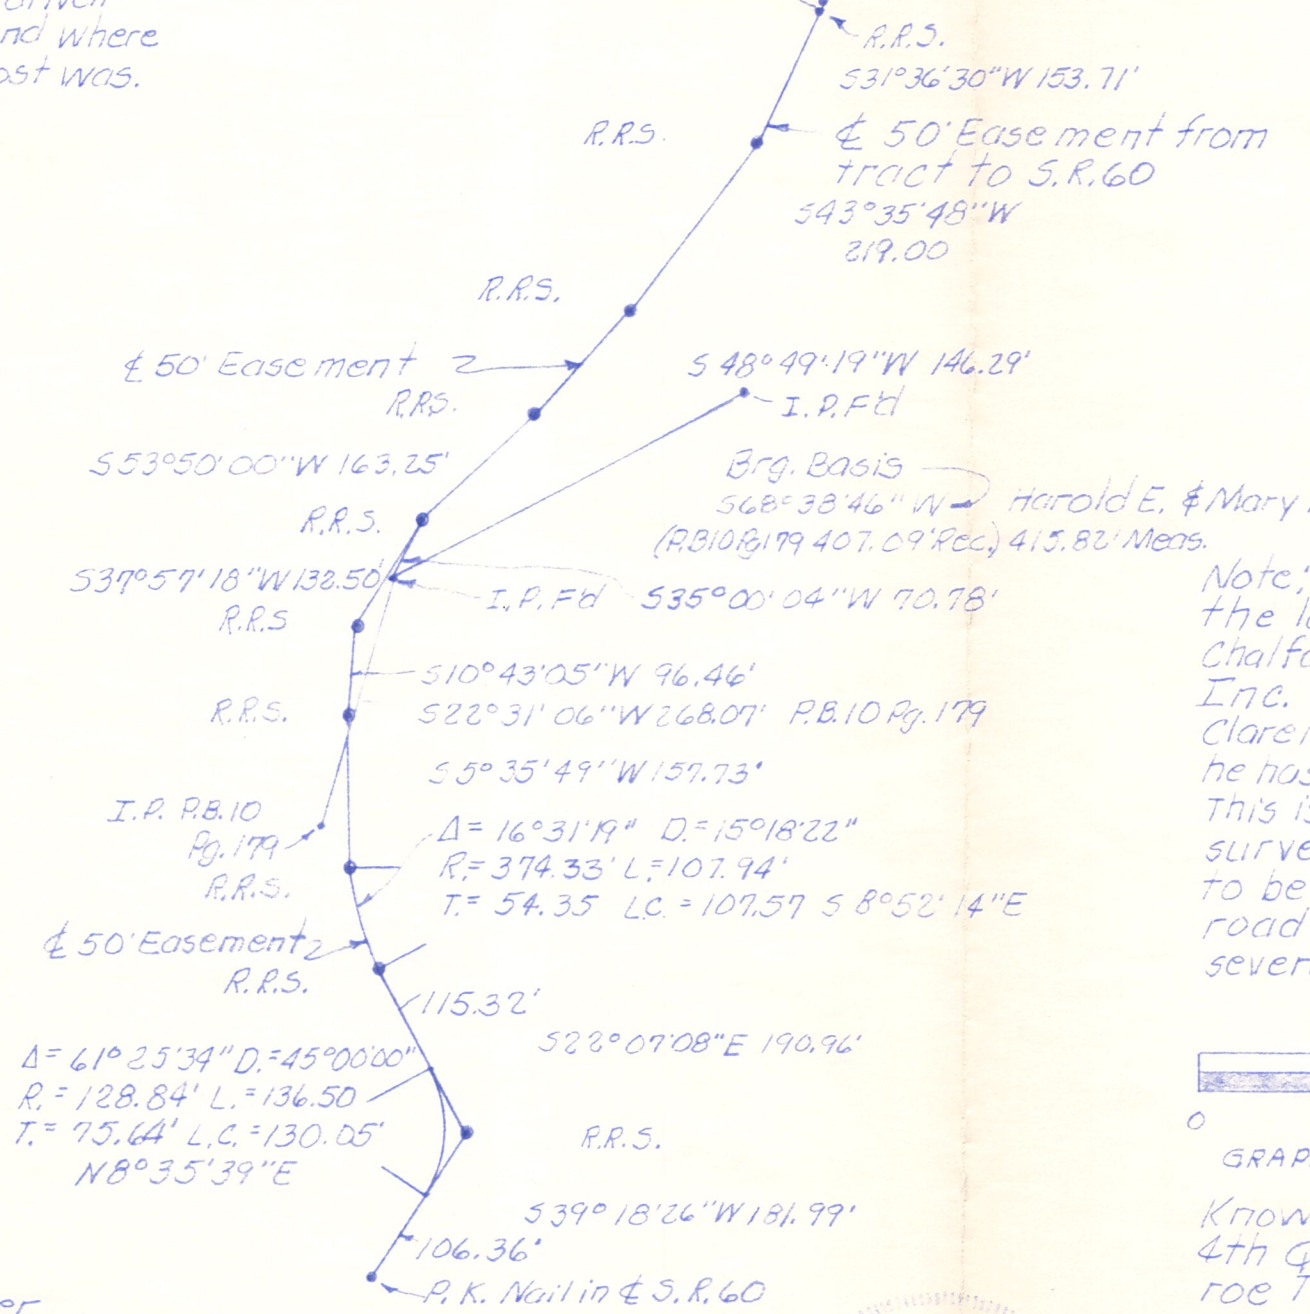 nd where
ost was.
R.R.S.
S31°36'30"W 153.71'
R.R.S.
℄ 50' Easement from
tract to S.R.60
S43°35'48"W
219.00
R.R.S.
℄ 50' Easement
S 48°49'19"W 146.29'
R.R.S.
I.P. F'd
S53°50'00"W 163.25'
Brg. Basis
S68°38'46"W
Harold E. & Mary
R.R.S.
(P.B.10 Pg.179 407.09' Rec.) 415.82' Meas.
S37°57'18"W 132.50'
I.P. F'd
S35°00'04"W 70.78'
R.R.S
S10°43'05"W 96.46'
R.R.S.
S22°31'06"W 268.07' P.B.10 Pg.179
S5°35'49"W 157.73'
I.P. P.B.10
Pg.179
Δ= 16°31'19" D.=15°18'22"
R.= 374.33' L.=107.94'
T.= 54.35 L.C.=107.57 S 8°52'14"E
R.R.S.
℄ 50' Easement
R.R.S.
115.32'
S22°07'08"E 190.96'
Δ= 61°25'34" D.=45°00'00"
R.= 128.84' L.=136.50
T.= 75.64' L.C.=130.05'
N8°35'39"E
R.R.S.
S39°18'26"W 181.99'
106.36'
P.K. Nail in ℄ S.R.60
Note;
the
Chalf
Inc.
Clare
he has
This i
surve
to be
road
sever
0
GRAP
Know
4th
roe T
or